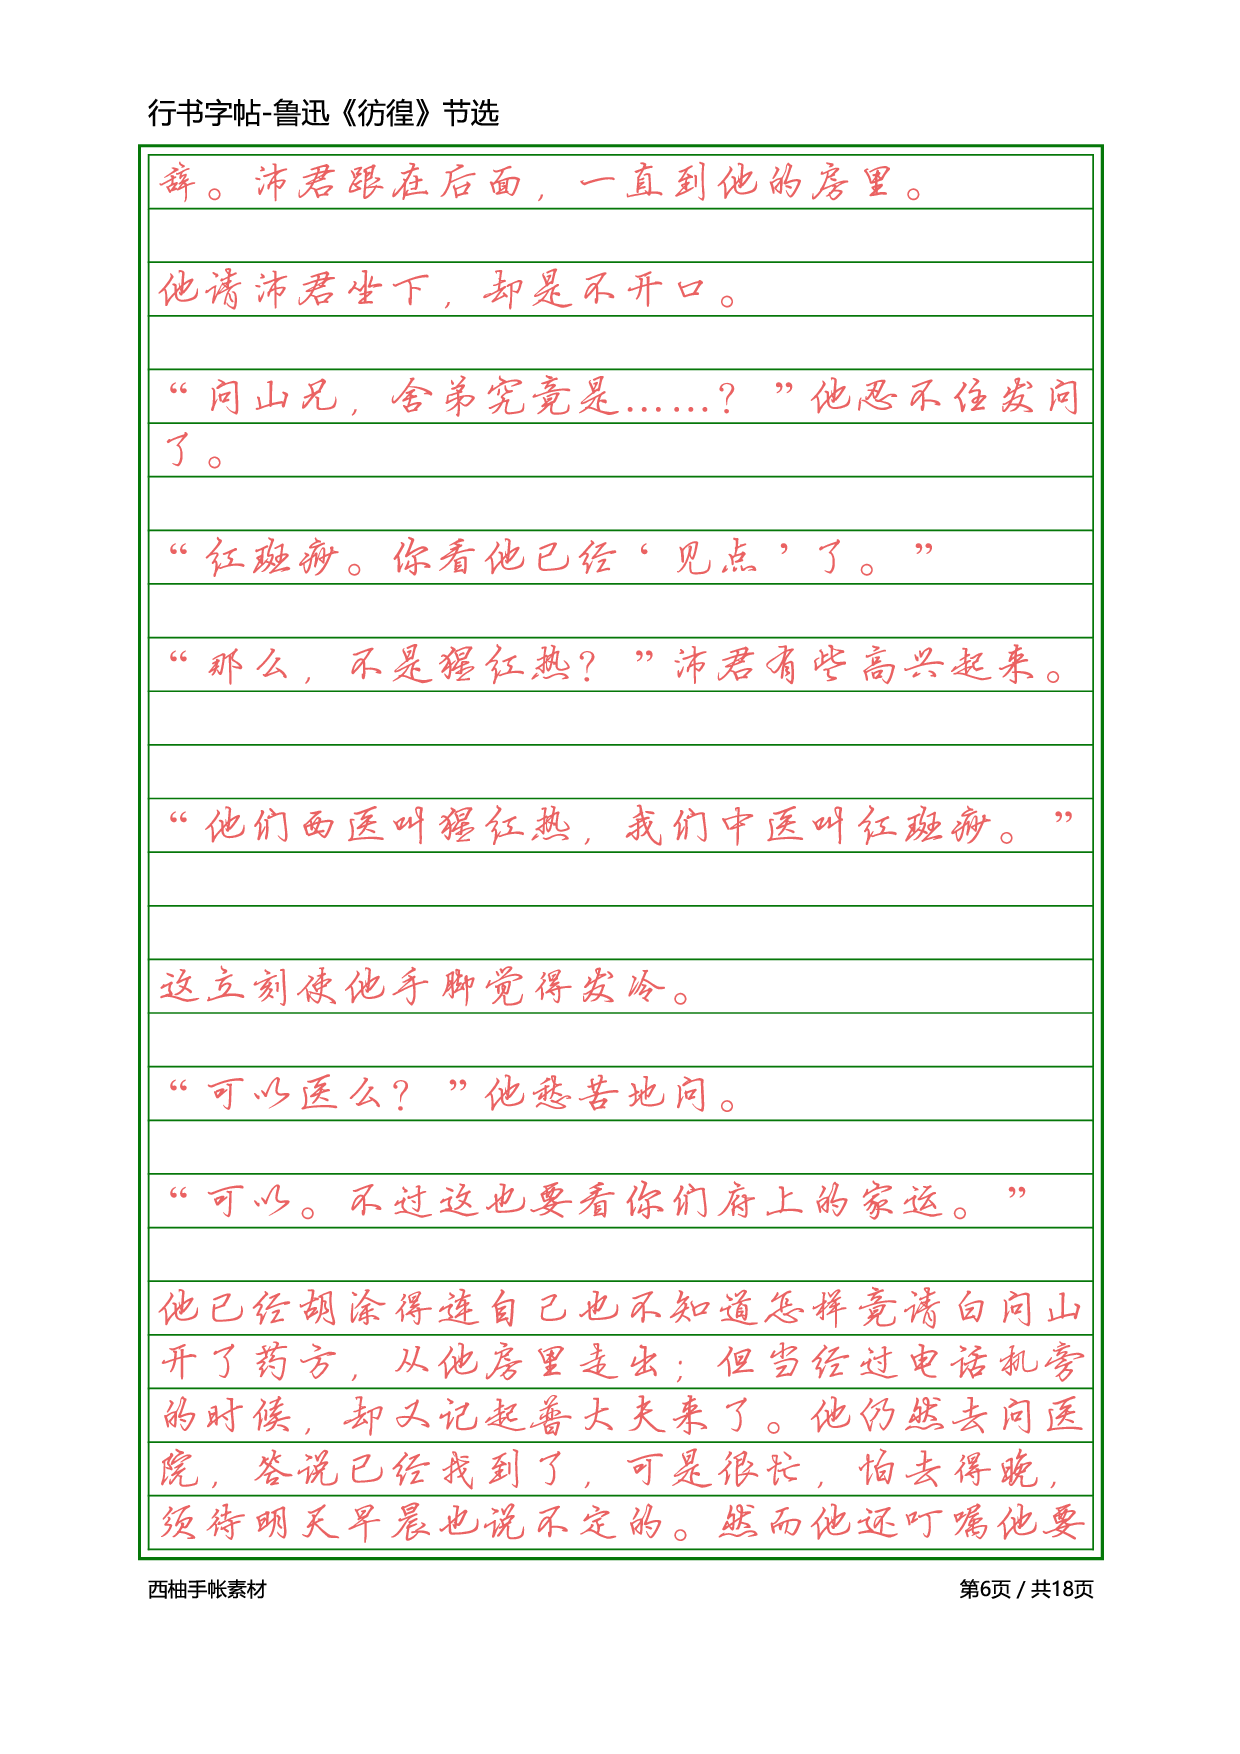 行书字帖-鲁迅《彷徨》节选
辞。沛君跟在后面，一直到他的房里。
他请沛君坐下，却是不开口。
“问山兄，舍弟究竟是……？”他忍不住发问
了。
“红斑痧。你看他已经‘见点’了。”
“那么，不是猩红热？”沛君有些高兴起来。
“他们西医叫猩红热，我们中医叫红斑痧。”
这立刻使他手脚觉得发冷。
“可以医么？”他愁苦地问。
“可以。不过这也要看你们府上的家运。”
他已经胡涂得连自己也不知道怎样竟请白问山
开了药方，从他房里走出；但当经过电话机旁
的时候，却又记起普大夫来了。他仍然去问医
院，答说已经找到了，可是很忙，怕去得晚，
须待明天早晨也说不定的。然而他还叮嘱他要
西柚手帐素材
第6页 / 共18页